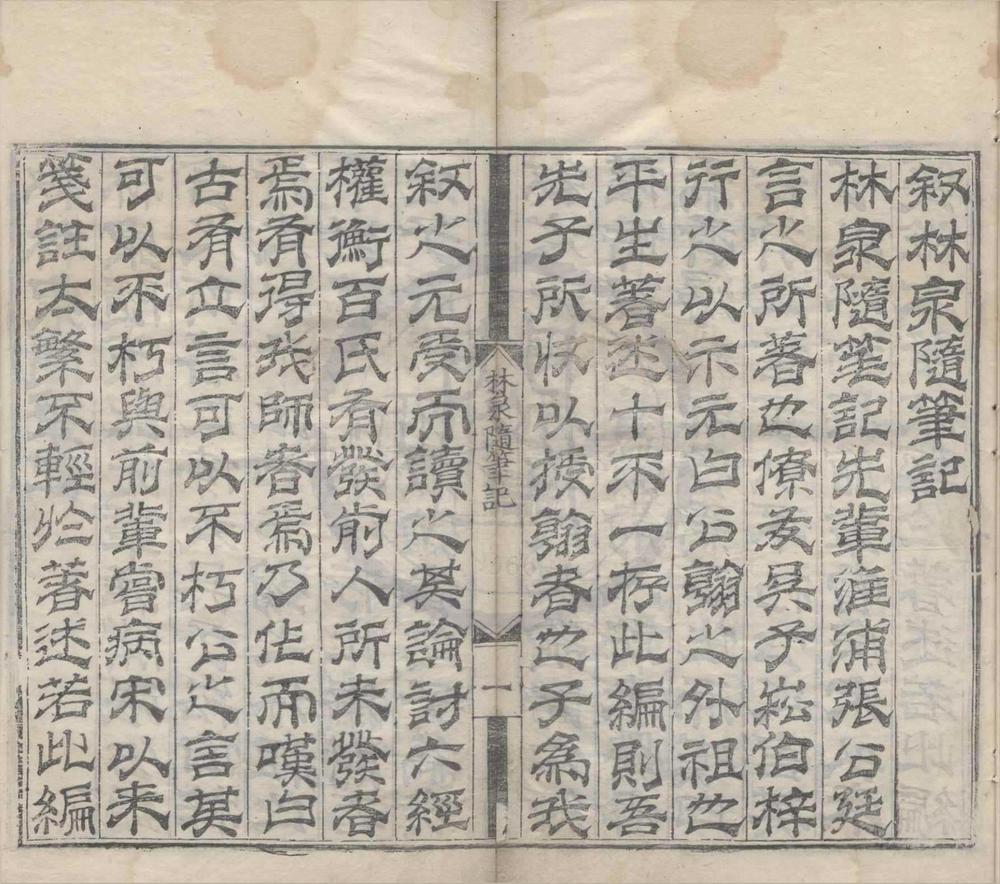 叙林泉隨筆記
林泉隨筆記先輩淮浦張公廷
言之所著也僚友吳子崧伯梓
行之以示元白公翰之外祖也
平生著述十不一存此編則吾
先子所收以授翰者也子爲我
林泉隨筆記
一
叙之元受而讀之其論討六經
權衡百氏有發前人所未發者
焉有得我師者焉乃作而嘆曰
古有立言可以不朽公之言其
可以不朽與前輩嘗病宋以來
箋註太繁不輕於著述若此編